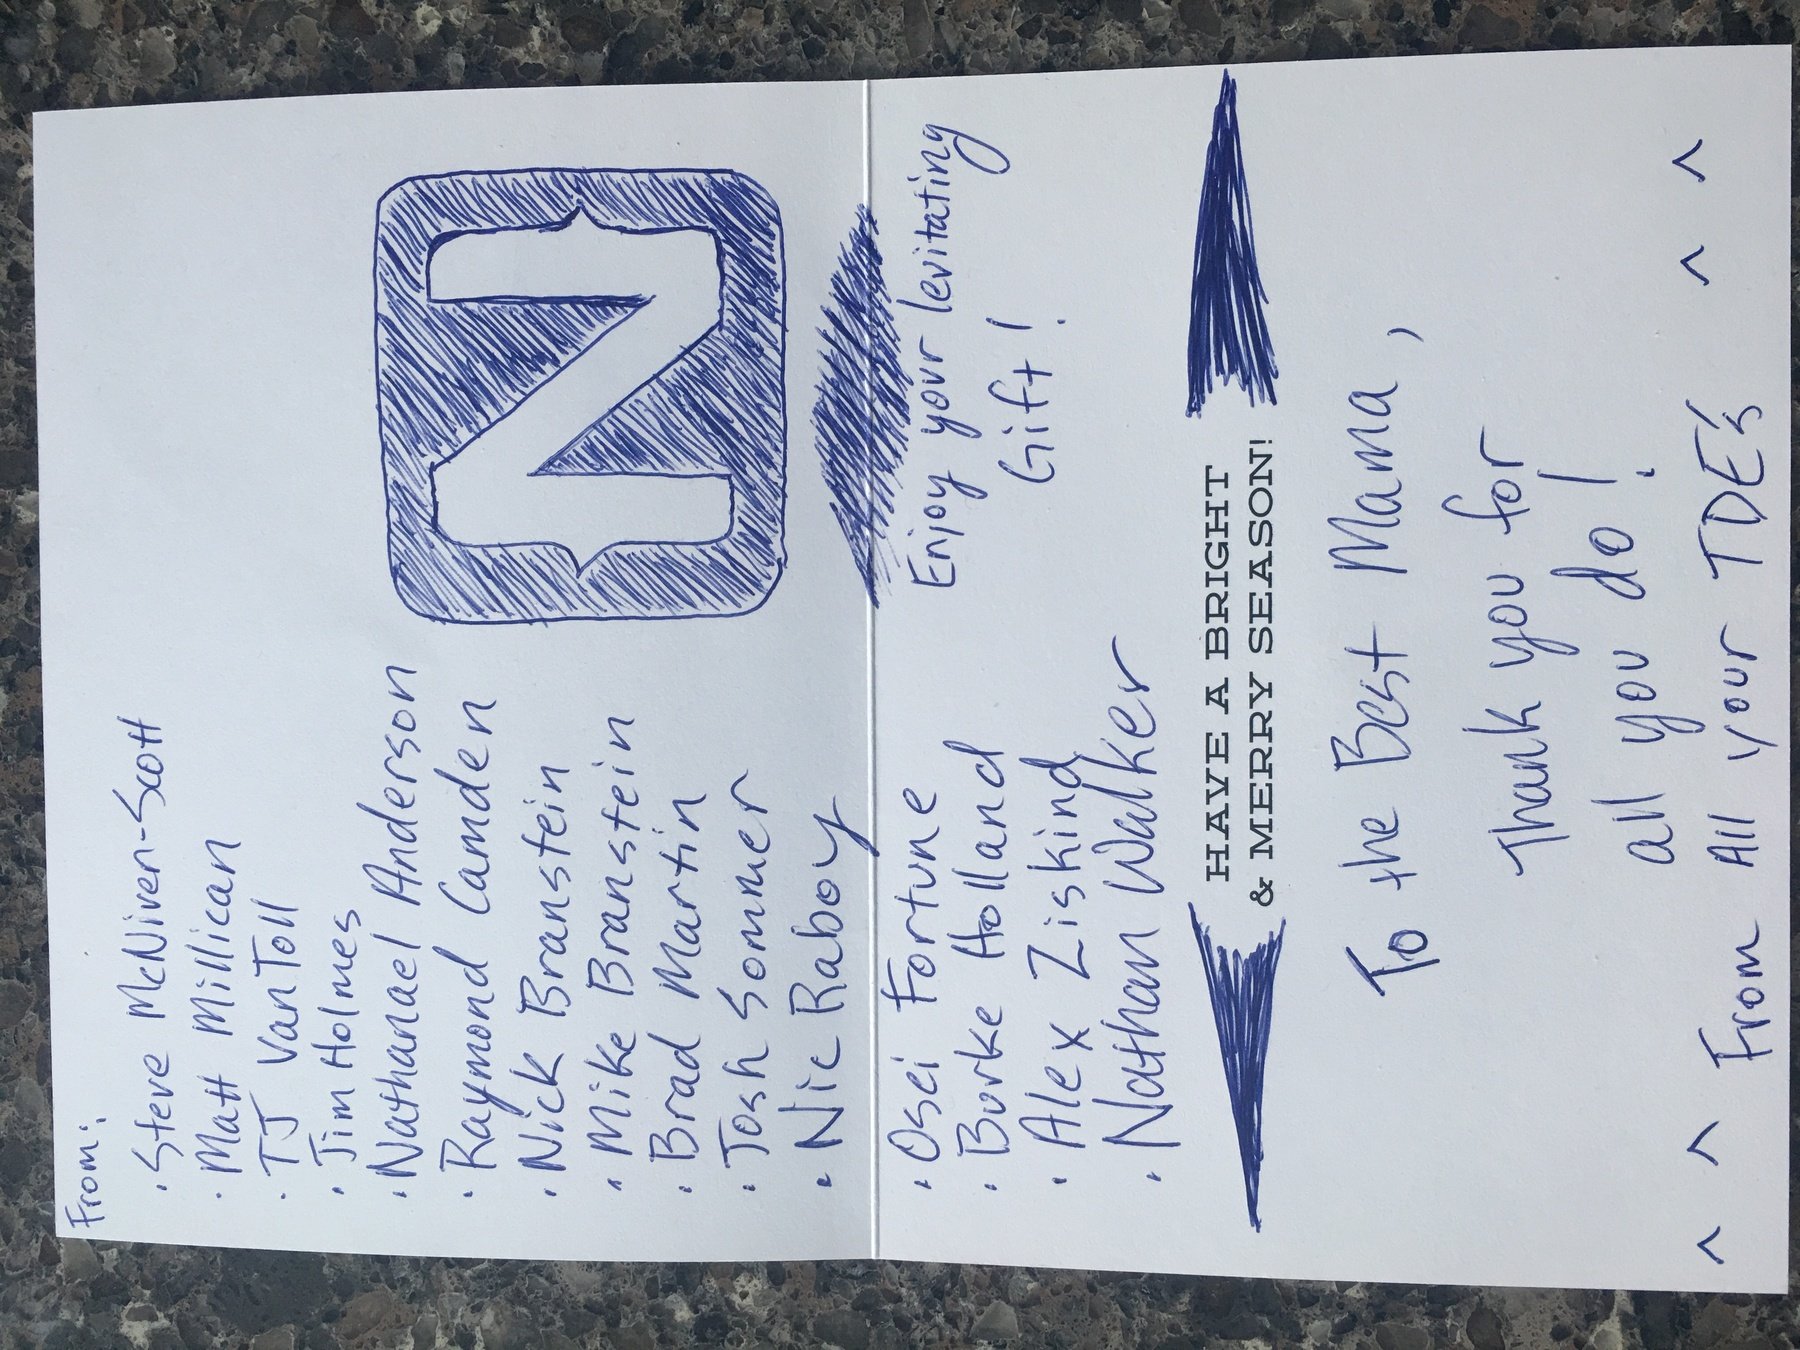 From:
· Steve McNiven-Scott
· Matt Millican
· TJ VanToll
· Jim Holmes
· Nathanael Anderson
· Raymond Camden
· Nick Branstein
· Mike Branstein
· Brad Martin
· Josh Sommer
· Nic Raboy
N
· Osei Fortune
· Burke Holland
· Alex Ziskind
· Nathan Walker
Enjoy your levitating
Gift!
HAVE A BRIGHT
& MERRY SEASON!
To the Best Mama,
Thank you for
all you do!
^ ^ From All your TDE's ^ ^